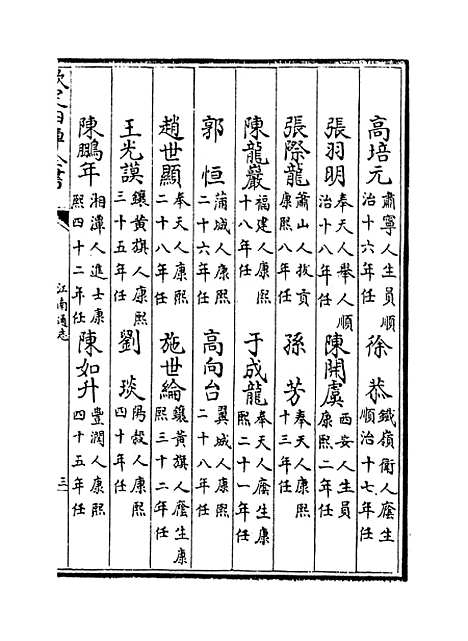 高培元 肅寧人生員順治十六年任 徐恭 鐵嶺衛人廕生順治十七年任
張羽明 奉天人舉人順治十八年任 陳開虞 西安人生員康熙二年任
張際龍 蕭山人拔貢康熙八年任 孫芳 奉天人康熙十三年任
陳龍巖 福建人康熙十八年任 于成龍 奉天人廕生康熙二十一年任
郭恒 蒲城人康熙二十六年任 高向台 翼城人康熙二十八年任
趙世顯 奉天人康熙二十八年任 施世綸 鑲黃旗人廕生康熙三十二年任
王光謨 鑲黃旗人康熙三十五年任 劉琰 陽穀人康熙四十年任
陳鵬年 湘潭人進士康熙四十二年任 陳如升 豐潤人康熙四十五年任
欽定四庫全書 江南通志 三